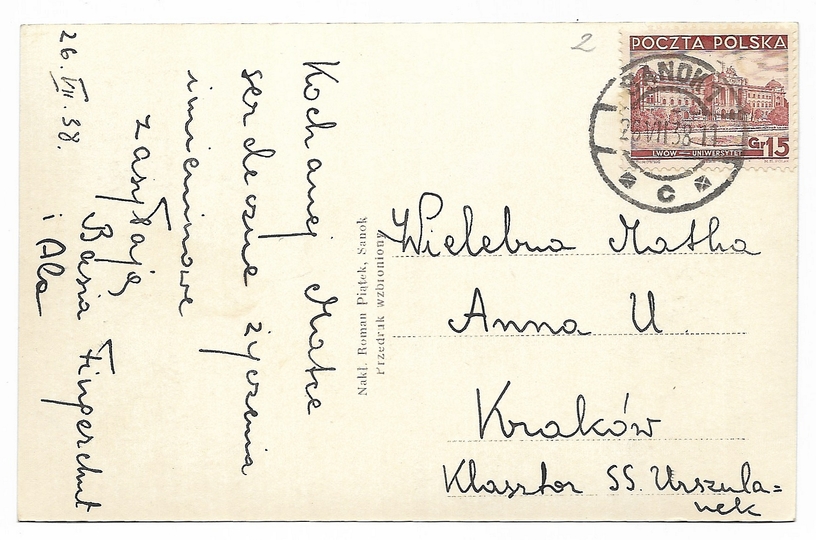 26.VII.38.
Kochanej Matce
serdeczne życzenia
imieninowe
zasyłają
Basia Fingerchut
i Ala
Nakł. Roman Piątek, Sanok
Przedruk wzbroniony
2
POCZTA POLSKA
LWÓW — UNIWERSYTET
Gr 15
SANOK
26 VII 38 11
C
Wielebna Matka
Anna U.
Kraków
Klasztor SS. Urszula=
nek